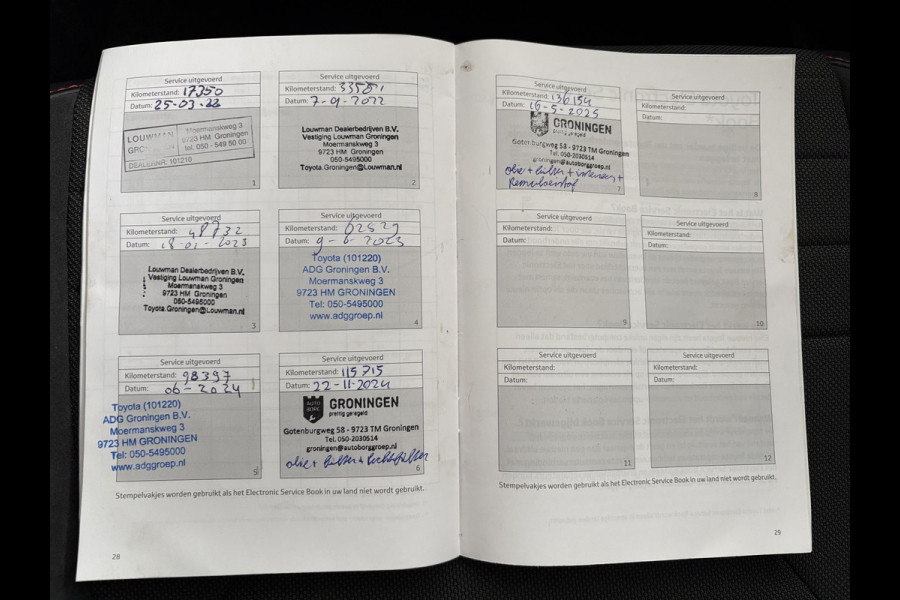 Service uitgevoerd
Kilometerstand: 17350
Datum: 25-03-22
LOUWMAN
Moermanskweg 3
9723 HM Groningen
tel. 050 - 549 50 00
DEALERNR. 101210
1
Service uitgevoerd
Kilometerstand:
Datum: 7-9-2022
Louwman Dealerbedrijven B.V.
Vestiging Louwman Groningen
Moermanskweg 3
9723 HM Groningen
050-5495000
Toyota.Groningen@Louwman.nl
2
Service uitgevoerd
Kilometerstand: 48732
Datum: 18-01-2023
Louwman Dealerbedrijven B.V.
Vestiging Louwman Groningen
Moermanskweg 3
9723 HM Groningen
050-5495000
Toyota.Groningen@Louwman.nl
3
Service uitgevoerd
Kilometerstand:
Datum: 9-6-2023
Toyota (101220)
ADG Groningen B.V.
Moermanskweg 3
9723 HM GRONINGEN
Tel: 050-5495000
www.adggroep.nl
4
Service uitgevoerd
Kilometerstand: 98397
Datum: 06-2024
Toyota (101220)
ADG Groningen B.V.
Moermanskweg 3
9723 HM GRONINGEN
Tel: 050-5495000
www.adggroep.nl
5
Service uitgevoerd
Kilometerstand: 115715
Datum: 22-11-2024
AUTO
GRONINGEN
prettig geregeld
Gotenburgweg 58 - 9723 TM Groningen
Tel. 050-2030514
groningen@autoborggroep.nl
olie + filter + luchtfilter
6
Stempelvakjes worden gebruikt als het Electronic Service Book in uw land niet wordt gebruikt.
28
Service uitgevoerd
Kilometerstand: 136154
Datum: 16-5-2025
GRONINGEN
prettig geregeld
Gotenburgweg 58 - 9723 TM Groningen
Tel. 050-2030514
groningen@autoborggroep.nl
olie + filter + +
Remvloeistof
7
Service uitgevoerd
Kilometerstand:
Datum:
8
Service uitgevoerd
Kilometerstand:
Datum:
9
Service uitgevoerd
Kilometerstand:
Datum:
10
Service uitgevoerd
Kilometerstand:
Datum:
11
Service uitgevoerd
Kilometerstand:
Datum:
12
Stempelvakjes worden gebruikt als het Electronic Service Book in uw land niet wordt gebruikt.
29